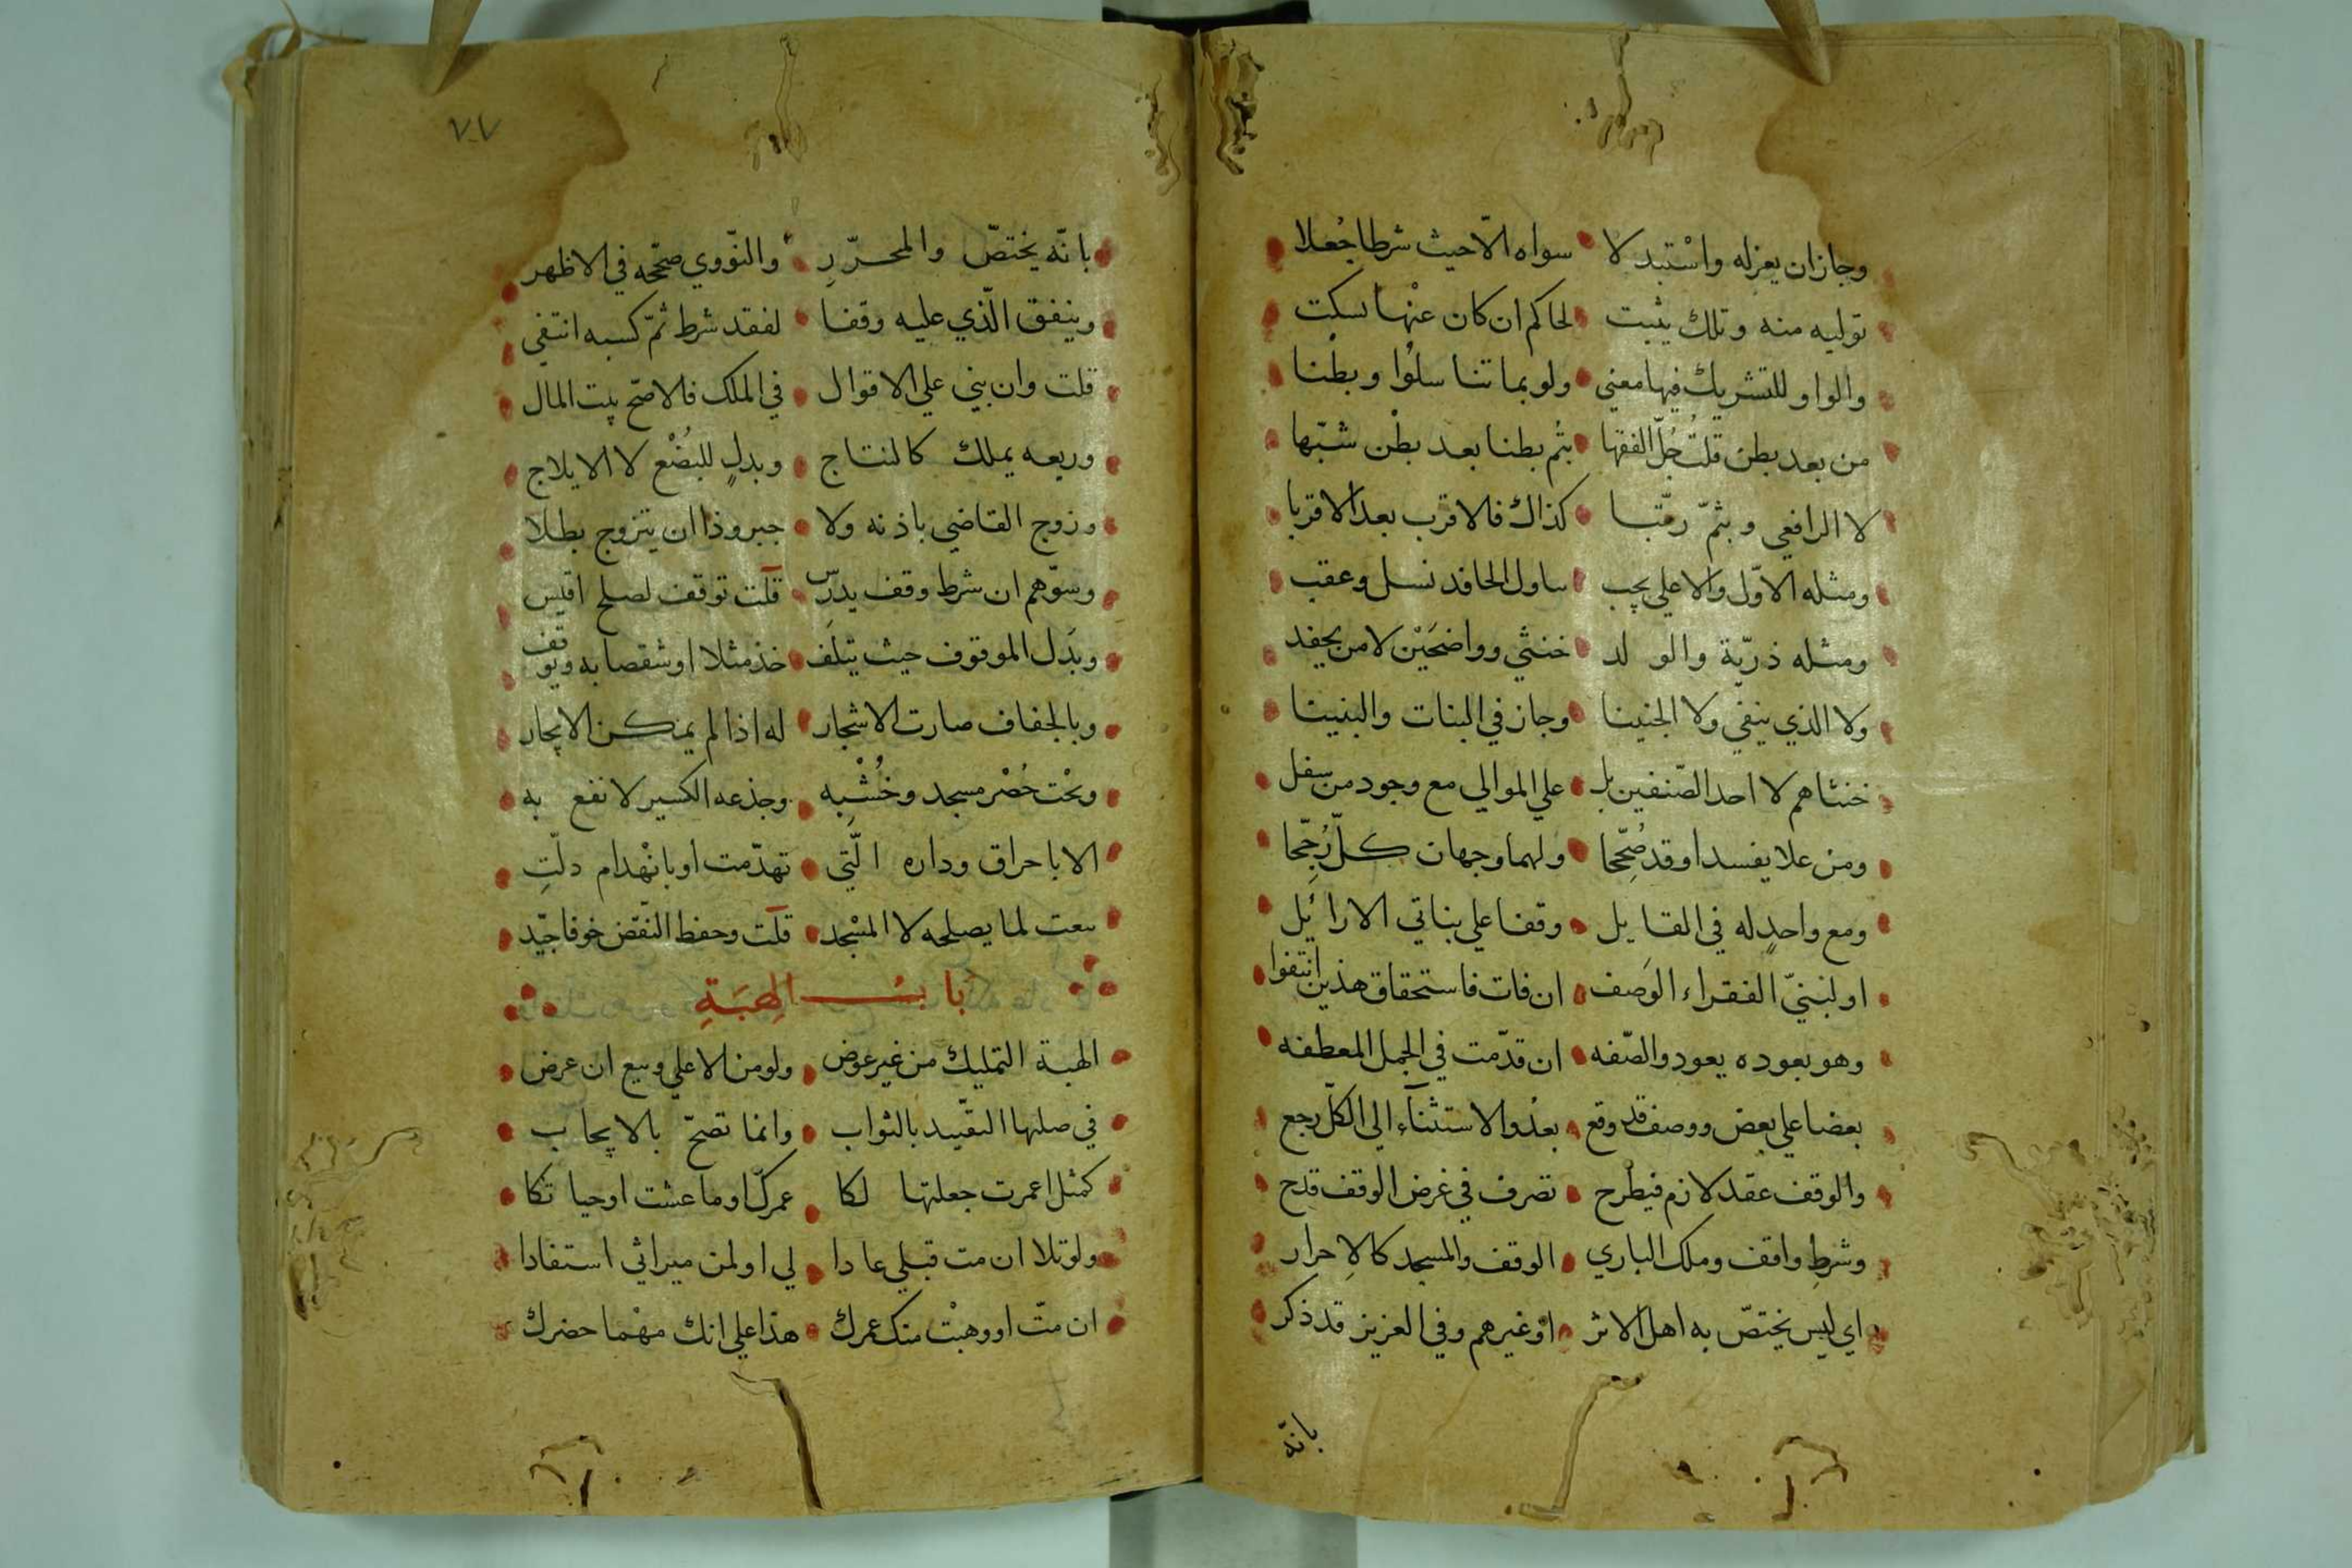 وجاز ان يعزله واستبدلا سواه الّا حيث شرطا جُعلا
توليه منه وتلك يثبت لحاكم ان كان عنها سكت
والواو للتشريك فيها معني ولو بما تناسلوا وبطنا
من بعد بطن قلتُ جُلّ الفقها بثم بطنا بعد بطْن شبّها
لا الرافعي وبثمّ رتّبا كذاك فالاقرب بعد الاقربا
ومثله الاوّل والاعلي يجب ساول الحافد نسل وعقب
ومثله ذرّية والولد خنثي وواضحَيْن لا من يحفد
ولا الذي ينفي ولا الجنينا وجاز في البنات والبنينا
خنثاهم لا احد الصّنفين بل علي الموالي مع وجود من سفل
ومن علا يفسد او قد صُحِّحا ولهما وجهان كلّ رُجِّحا
ومع واحدٍ له في المقايل وقفا علي بناتي الارائل
او لبَنيّ الفقراء الوَصف ان فات فاستحقاق هذين انتفوا
وهو بعوده يعود والصّفه ان قدّمت في الجمل المعطفه
بعضا علي بعض ووصف قد وقع بعدُ والاستثنآء الي الكلّ رجع
والوقف عقد لازم فيطرح تصرف في غرض الوقف قدح
وشرطِ واقف وملك الباري الوقف والمسجد كالاِحرار
اي ليس يختصّ به اهل الاثر اوْ غيرهم وفي العزيز قد ذكر
بانّه
٧٧
بانّه يختصّ والمحرّرِ والنّووي صحّحه في الاظهر
وينفق الّذي عليه وقفا لفقد شرط ثمّ كسبه انتفي
قلت وان بني علي الاقوال في الملك فالاصّح بيت المال
وريعه يملك كالنتاج وبدلٍ للبُضْع لا الايلاج
وزوج القاضي باذنه ولا جبر وذا ان يتزوج بطلا
وسوّهم ان شرط وقف يدرّس قلت توقف لصلح اقيس
وبَدَل الموقوف حيث يتلف خذ مثلا او شقصا به ويوقف
وبالجفاف صارت الاشجار له اذا لم يمكن الايجار
ونحْت حُصْر مسجد وخُشْبِه وجذعه الكسير لا نفع به
الا باحراق وداره الّتي تهدّمت او بانْهدام دلّتِ
بيعت لما يصلحه لا المسْجد قلت وحفظ النقض خوفا جيّد
بابُ الهِبَةِ
الهبة التمليك من غير عوض ولو من الاعلي وبيع ان عرض
في صلبها التقييد بالثواب وانما تصحّ بالايجاب
كمثل اعمرت جعلتها لكا عمرك او ما عشت او حياتكا
ولو تلا ان مت قبلي عادا لي او لمن ميراثي استفادا
ان متّ او وهبْت منك عمرك هذا علي انك مهْما حضرك